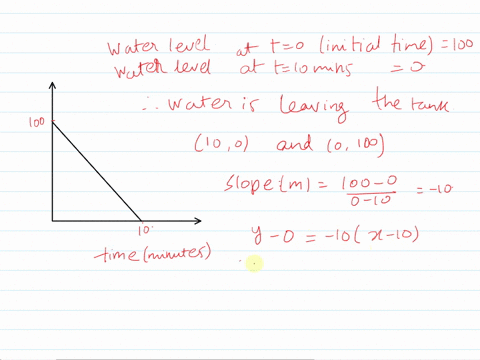 Water level at t=0 (initial time) = 100
Water level at t=10 mins = 0
∴ Water is leaving the tank
(10,0) and (0,100)
Slope(m) = (100-0)/(0-10) = -10
y-0 = -10(x-10)
100
10
time(minutes)